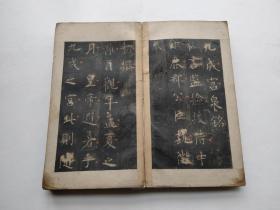 九成宫泉銘
秘書監檢校侍中
鉅鹿郡公臣魏徵
奉
勑撰
維貞觀六年孟夏之
月皇帝避暑乎
九成之宮此則隨